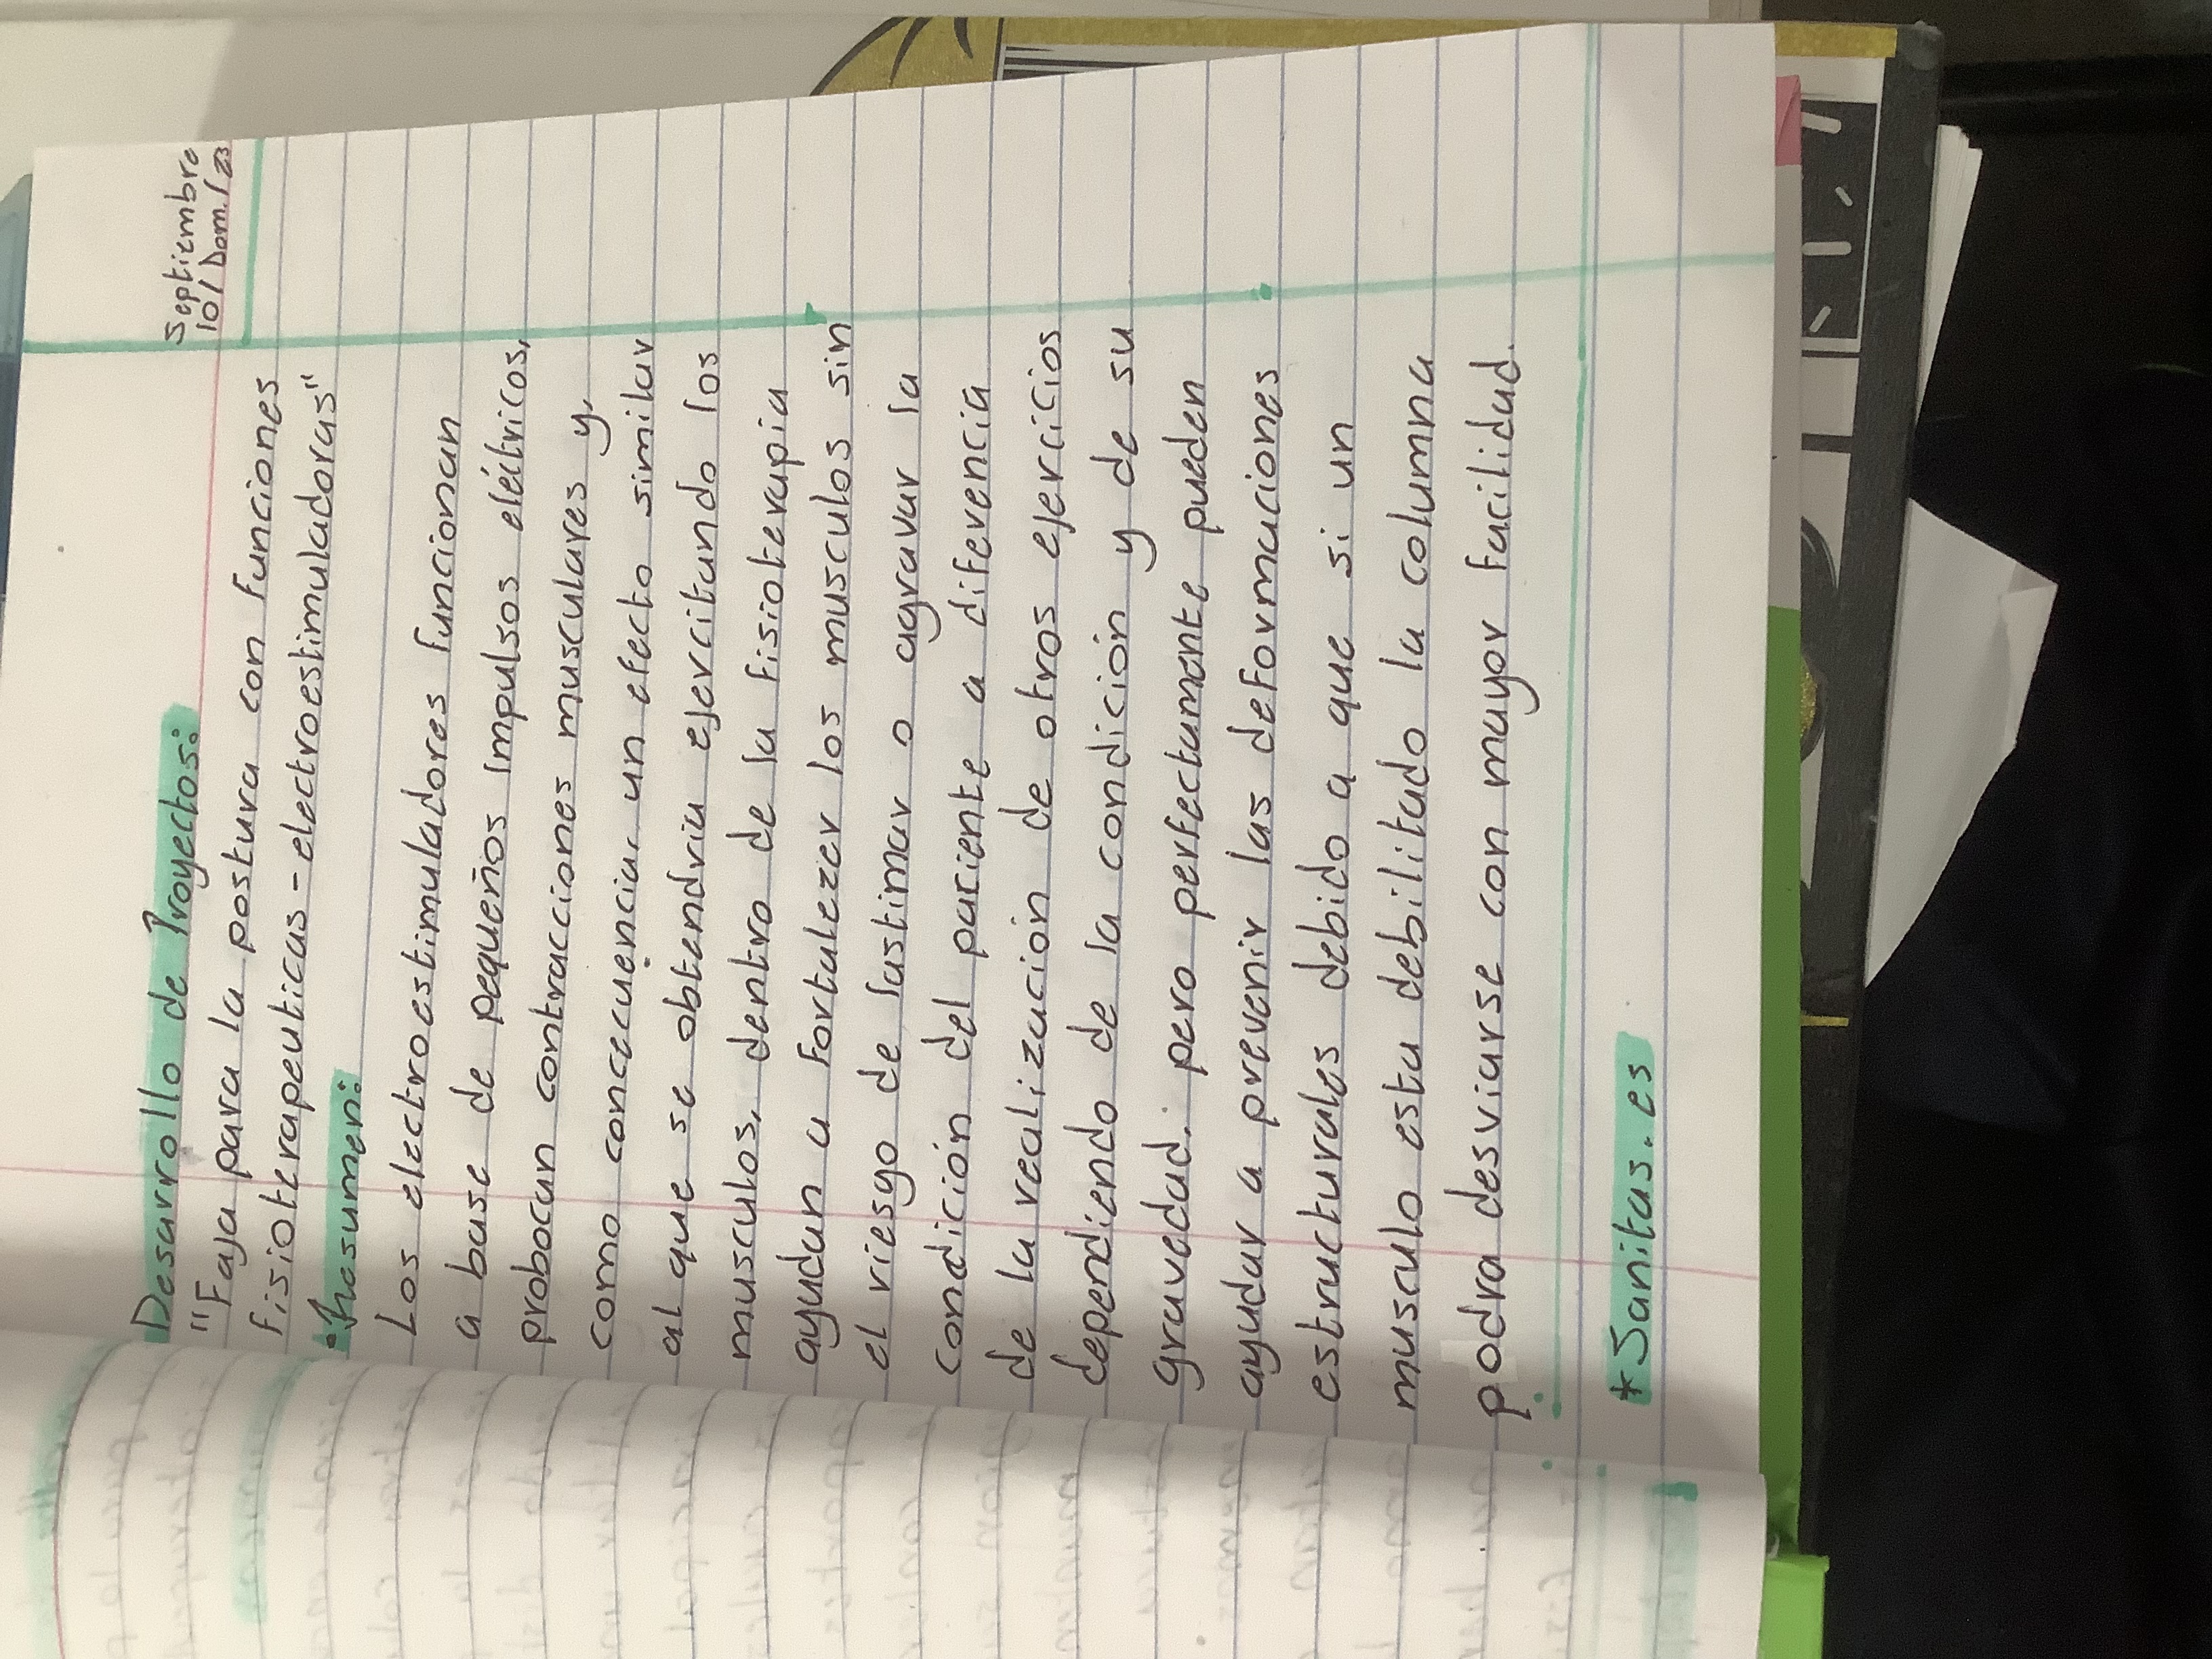 Desarrollo de Proyectos:
Septiembre
10/Dom./23
"Faja para la postura con funciones
fisioterapeuticas-electroestimuladoras"
Resumen:
Los electroestimuladores funcionan
a base de pequeños impulsos eléctricos,
probocan contracciones musculares y,
como concecuencia, un efecto similar
al que se obtendria ejercitando los
musculos, dentro de la fisioterapia
ayudan a fortalezer los musculos sin
el riesgo de lastimar o agravar la
condición del paciente a diferencia
de la realización de otros ejercicios
dependiendo de la condición y de su
gravedad. pero perfectamente pueden
ayudar a prevenir las deformaciones
estructurales debido a que si un
musculo esta debilitado la columna
podra desviarse con mayor facilidad.
*Sanitas.es